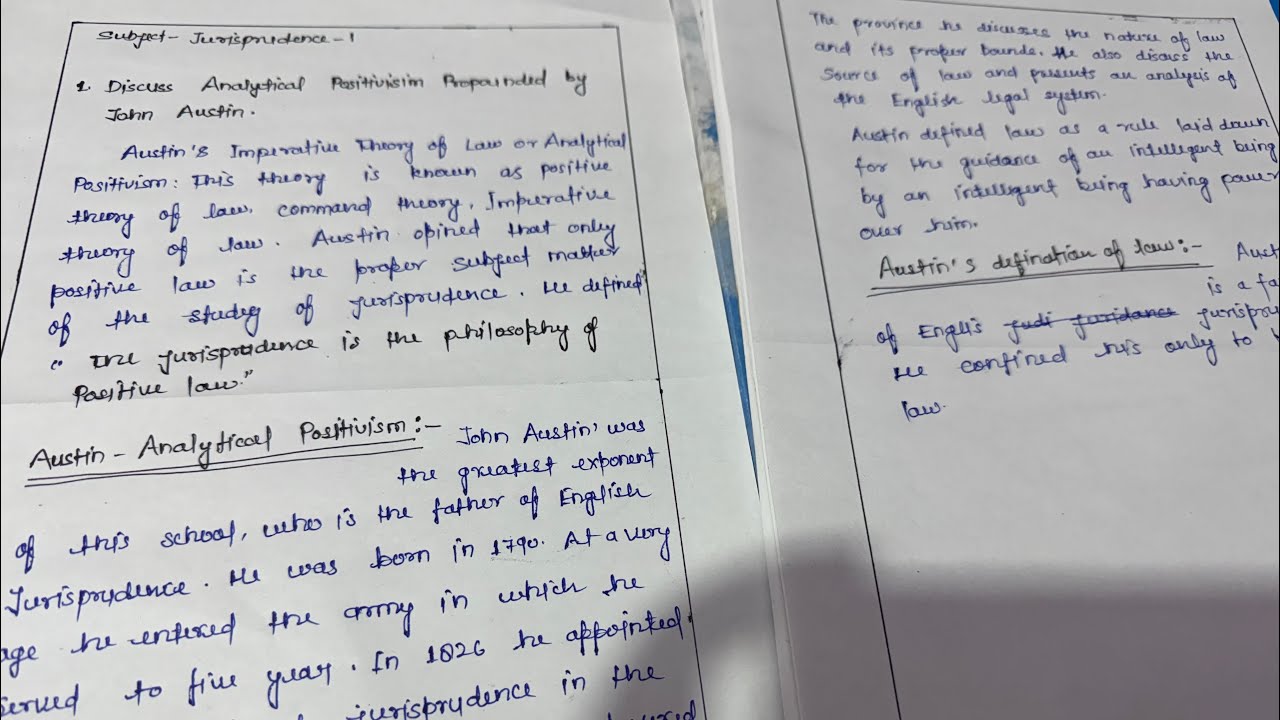 Subject - Jurisprudence - 1
1. Discuss Analytical Positivisim Propounded by
John Austin.
Austin's Imperative Theory of Law or Analytical
Positivism: This theory is known as positive
theory of law. command theory, Imperative
theory of law. Austin opined that only
positive law is the proper subject matter
of the study of jurisprudence. He defined
" The jurisprudence is the philosophy of
Positive law."
Austin - Analytical Positivism :-
John Austin' was
the greatest exponent
of this school, who is the father of English
Jurisprudence. He was born in 1790. At a very
age he entered the army in which he
served to five year. In 1826 he appointed
jurisprudence in the
The province he discusses the nature of law
and its proper bounds. He also discuss the
Source of law and presents an analysis of
the English legal system.
Austin defined law as a rule laid down
for the guidance of an intelligent being
by an intelligent being having power
over him.
Austin's defination of law :-
Aust
is a fa
of Englis jurispru
He confined his only to
law.